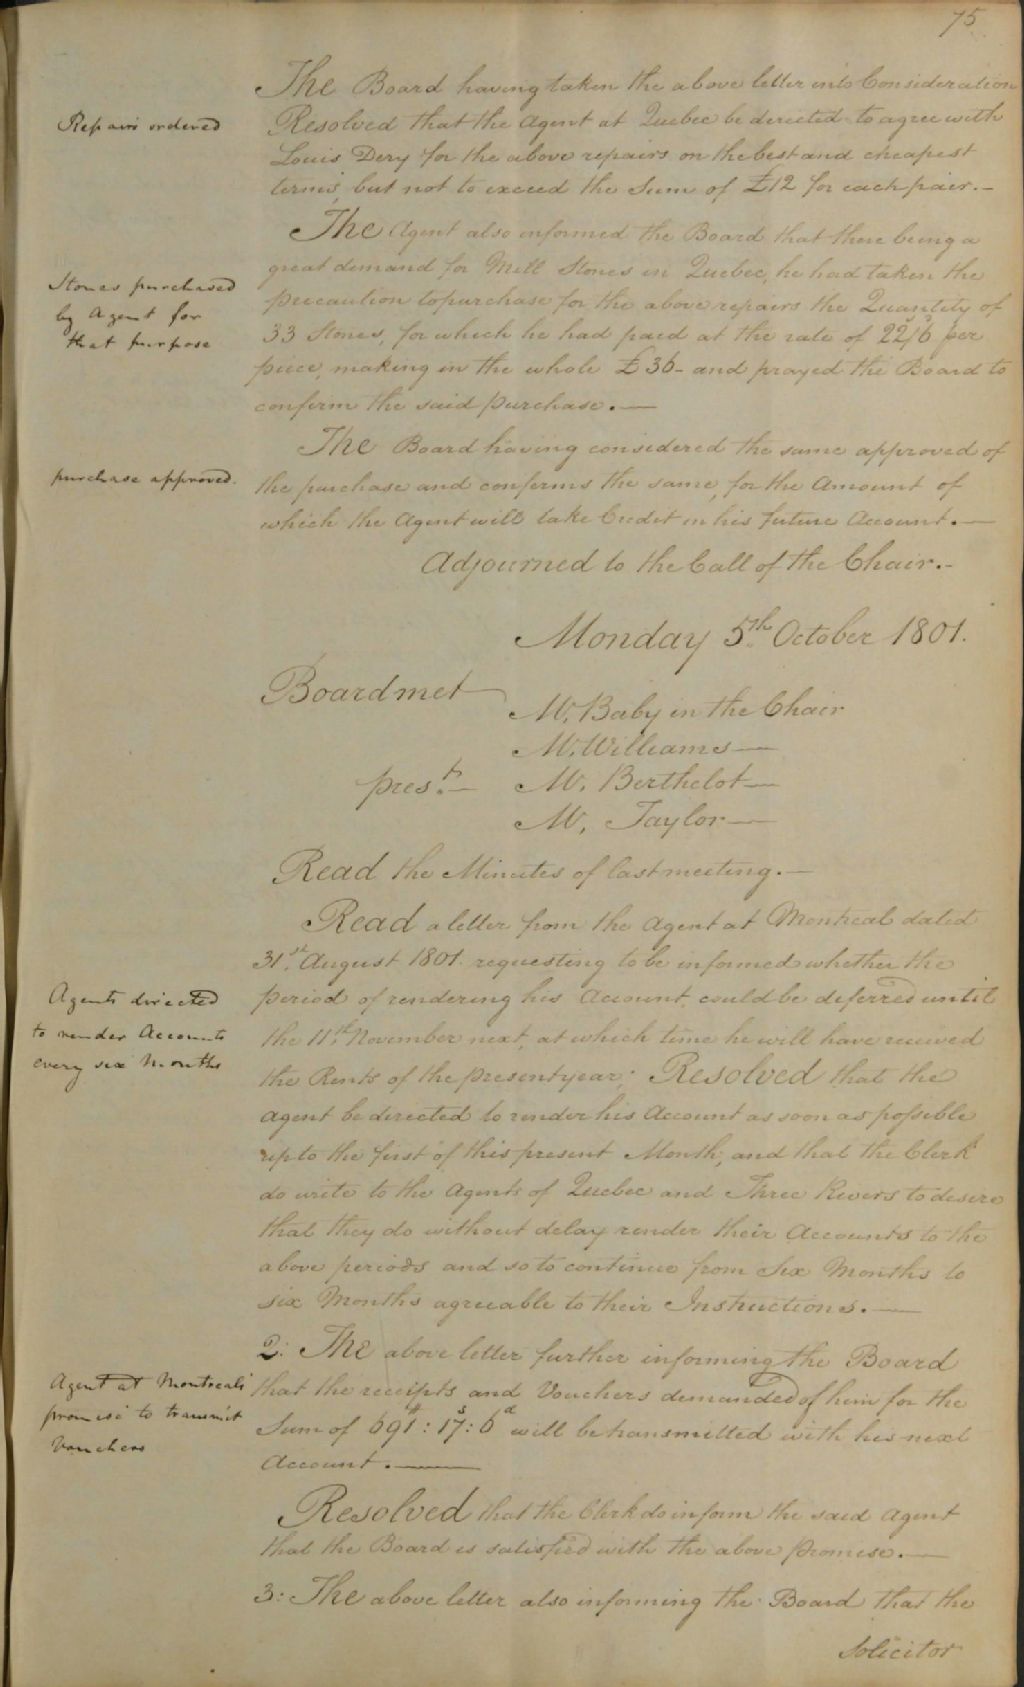 75
The Board having taken the above letter into Consideration
Repairs ordered
Resolved that the Agent at Quebec be derected to agree with
Louis Dery for the above repairs on the best and cheapest
terms, but not to exceed the Sum of £12 for each pair.—
The Agent also informed the Board that there being a
great demand for Mill Stones in Quebec, he had taken the
Stones purchased
by Agent for
that purpose
precaution to purchase for the above repairs the Quantity of
33 Stones, for which he had paid at the rate of 22s/6 per
piece, making in the whole £36- and prayed the Board to
confirm the said purchase.—
The Board having considered the same approved of
purchase approved.
the purchase and confirms the same, for the Amount of
which the Agent will take Credit in his future Account.—
Adjourned to the Call of the Chair.-
Monday 5th October 1801.
Board met
Mr. Baby in the Chair
Mr. Williams—
pres.t—
Mr. Berthelot—
Mr. Taylor—
Read the Minutes of last meeting.—
Read a letter from the Agent at Montreal dated
31st August 1801. requesting to be informed whether the
Agents directed
to render Accounts
every six Months
period of rendering his Account, could be deferred until
the 11th November next, at which time he will have received
the Rents of the present year; Resolved that the
Agent be directed to render his Account as soon as possible
up to the first of this present Month, and that the Clerk
do write to the Agents of Quebec and Three Rivers to desire
that they do without delay render their Accounts to the
above periods and so to continue from Six Months to
six Months agreeable to their Instructions.—
2: The above letter further informing the Board
Agent at Montreal
promise to transmit
Vouchers
that the receipts and Vouchers demanded of him for the
Sum of 691:17s:6d will be transmitted with his next
Account.—
Resolved that the Clerk do inform the said Agent
that the Board is satisfied with the above promise.—
3: The above letter also informing the Board that the
Solicitor